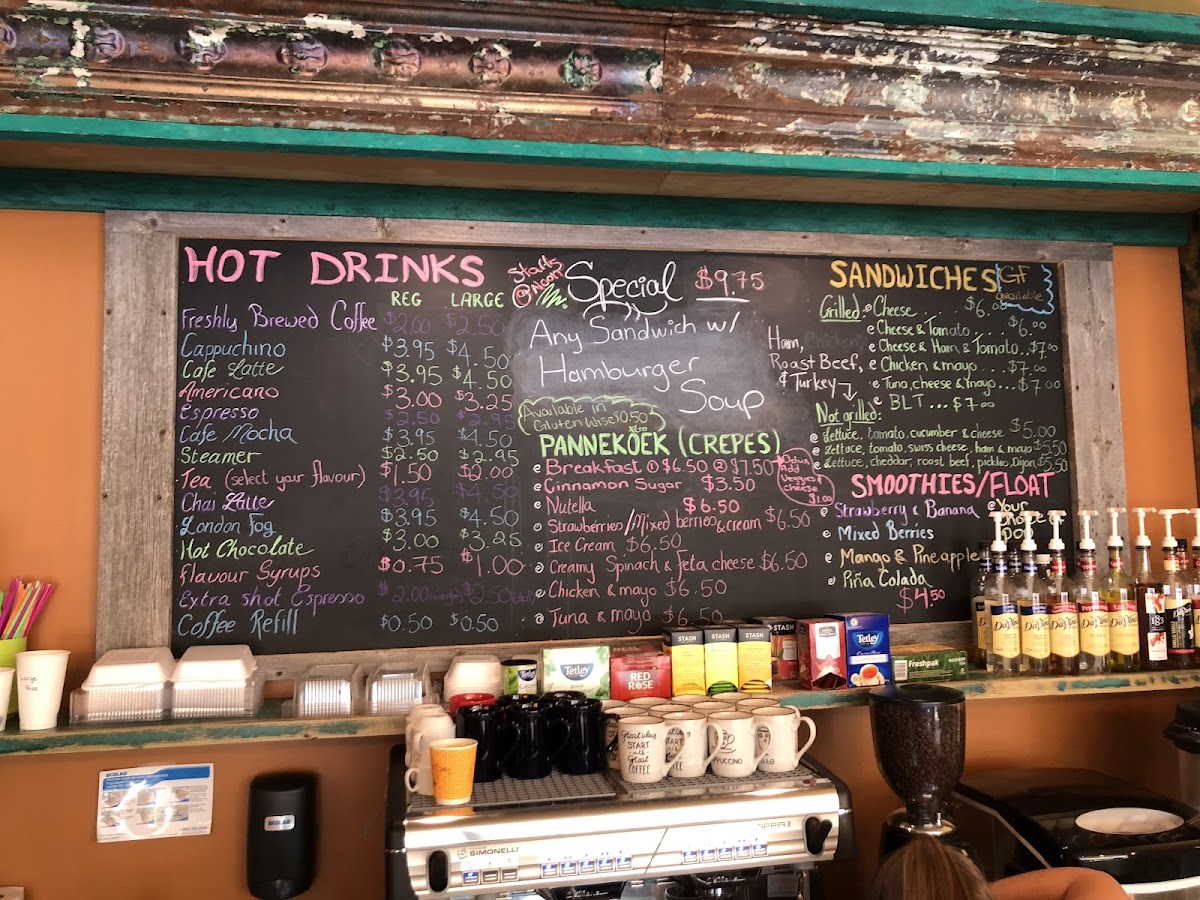 HOT DRINKS
REG LARGE
Freshly Brewed Coffee $2.00 $2.50
Cappuchino $3.95 $4.50
Cafe Latte $3.95 $4.50
Americano $3.00 $3.25
Espresso $2.50 $2.95
Cafe Mocha $3.95 $4.50
Steamer $2.50 $2.95
Tea (select your flavour) $1.50 $2.00
Chai Latte $3.95 $4.50
London Fog $3.95 $4.50
Hot Chocolate $3.00 $3.25
Flavour Syrups $0.75 $1.00
Extra shot Espresso $2.00 $2.50
Coffee Refill $0.50 $0.50
Starts
@ Noon
Special $9.75
Any Sandwich w/
Hamburger
Soup
Available in
Gluten Wise $0.50
Xtra
PANNEKOEK (CREPES)
Breakfast ① $6.50 ② $7.50
Cinnamon Sugar $3.50
Nutella $6.50
Strawberries/Mixed berries & cream $6.50
Ice Cream $6.50
Creamy Spinach & Feta cheese $6.50
Chicken & mayo $6.50
Tuna & mayo $6.50
Add
Veggies &
cheese
$1.00
SANDWICHES
GF
available
Grilled: Cheese $6.00
Cheese & Tomato.... $6.00
Cheese & Ham & Tomato.. $7.00
Chicken & mayo .... $7.00
Tuna, cheese & mayo... $7.00
BLT... $7.00
Ham, Chicken
Roast Beef,
& Turkey
Not grilled:
Lettuce, tomato, cucumber & cheese $5.00
Lettuce, tomato, swiss cheese, ham & mayo $5.50
Lettuce, cheddar, roast beef, pickles, Dijon $5.50
SMOOTHIES/FLOAT
Strawberry & Banana
Mixed Berries
Mango & Pineapple
Piña Colada
$4.50
Your
Choice of
Pop
STASH
STASH
STASH
STASH
Tetley
Tetley
Tetley
RED ROSE
Freshpak
DaVinci
DaVinci
DaVinci
DaVinci
DaVinci
1883
Great ideas
START
with
Great
COFFEE
CAPPUCCINO
SIMONELLI
ECOLAB
ECOLAB